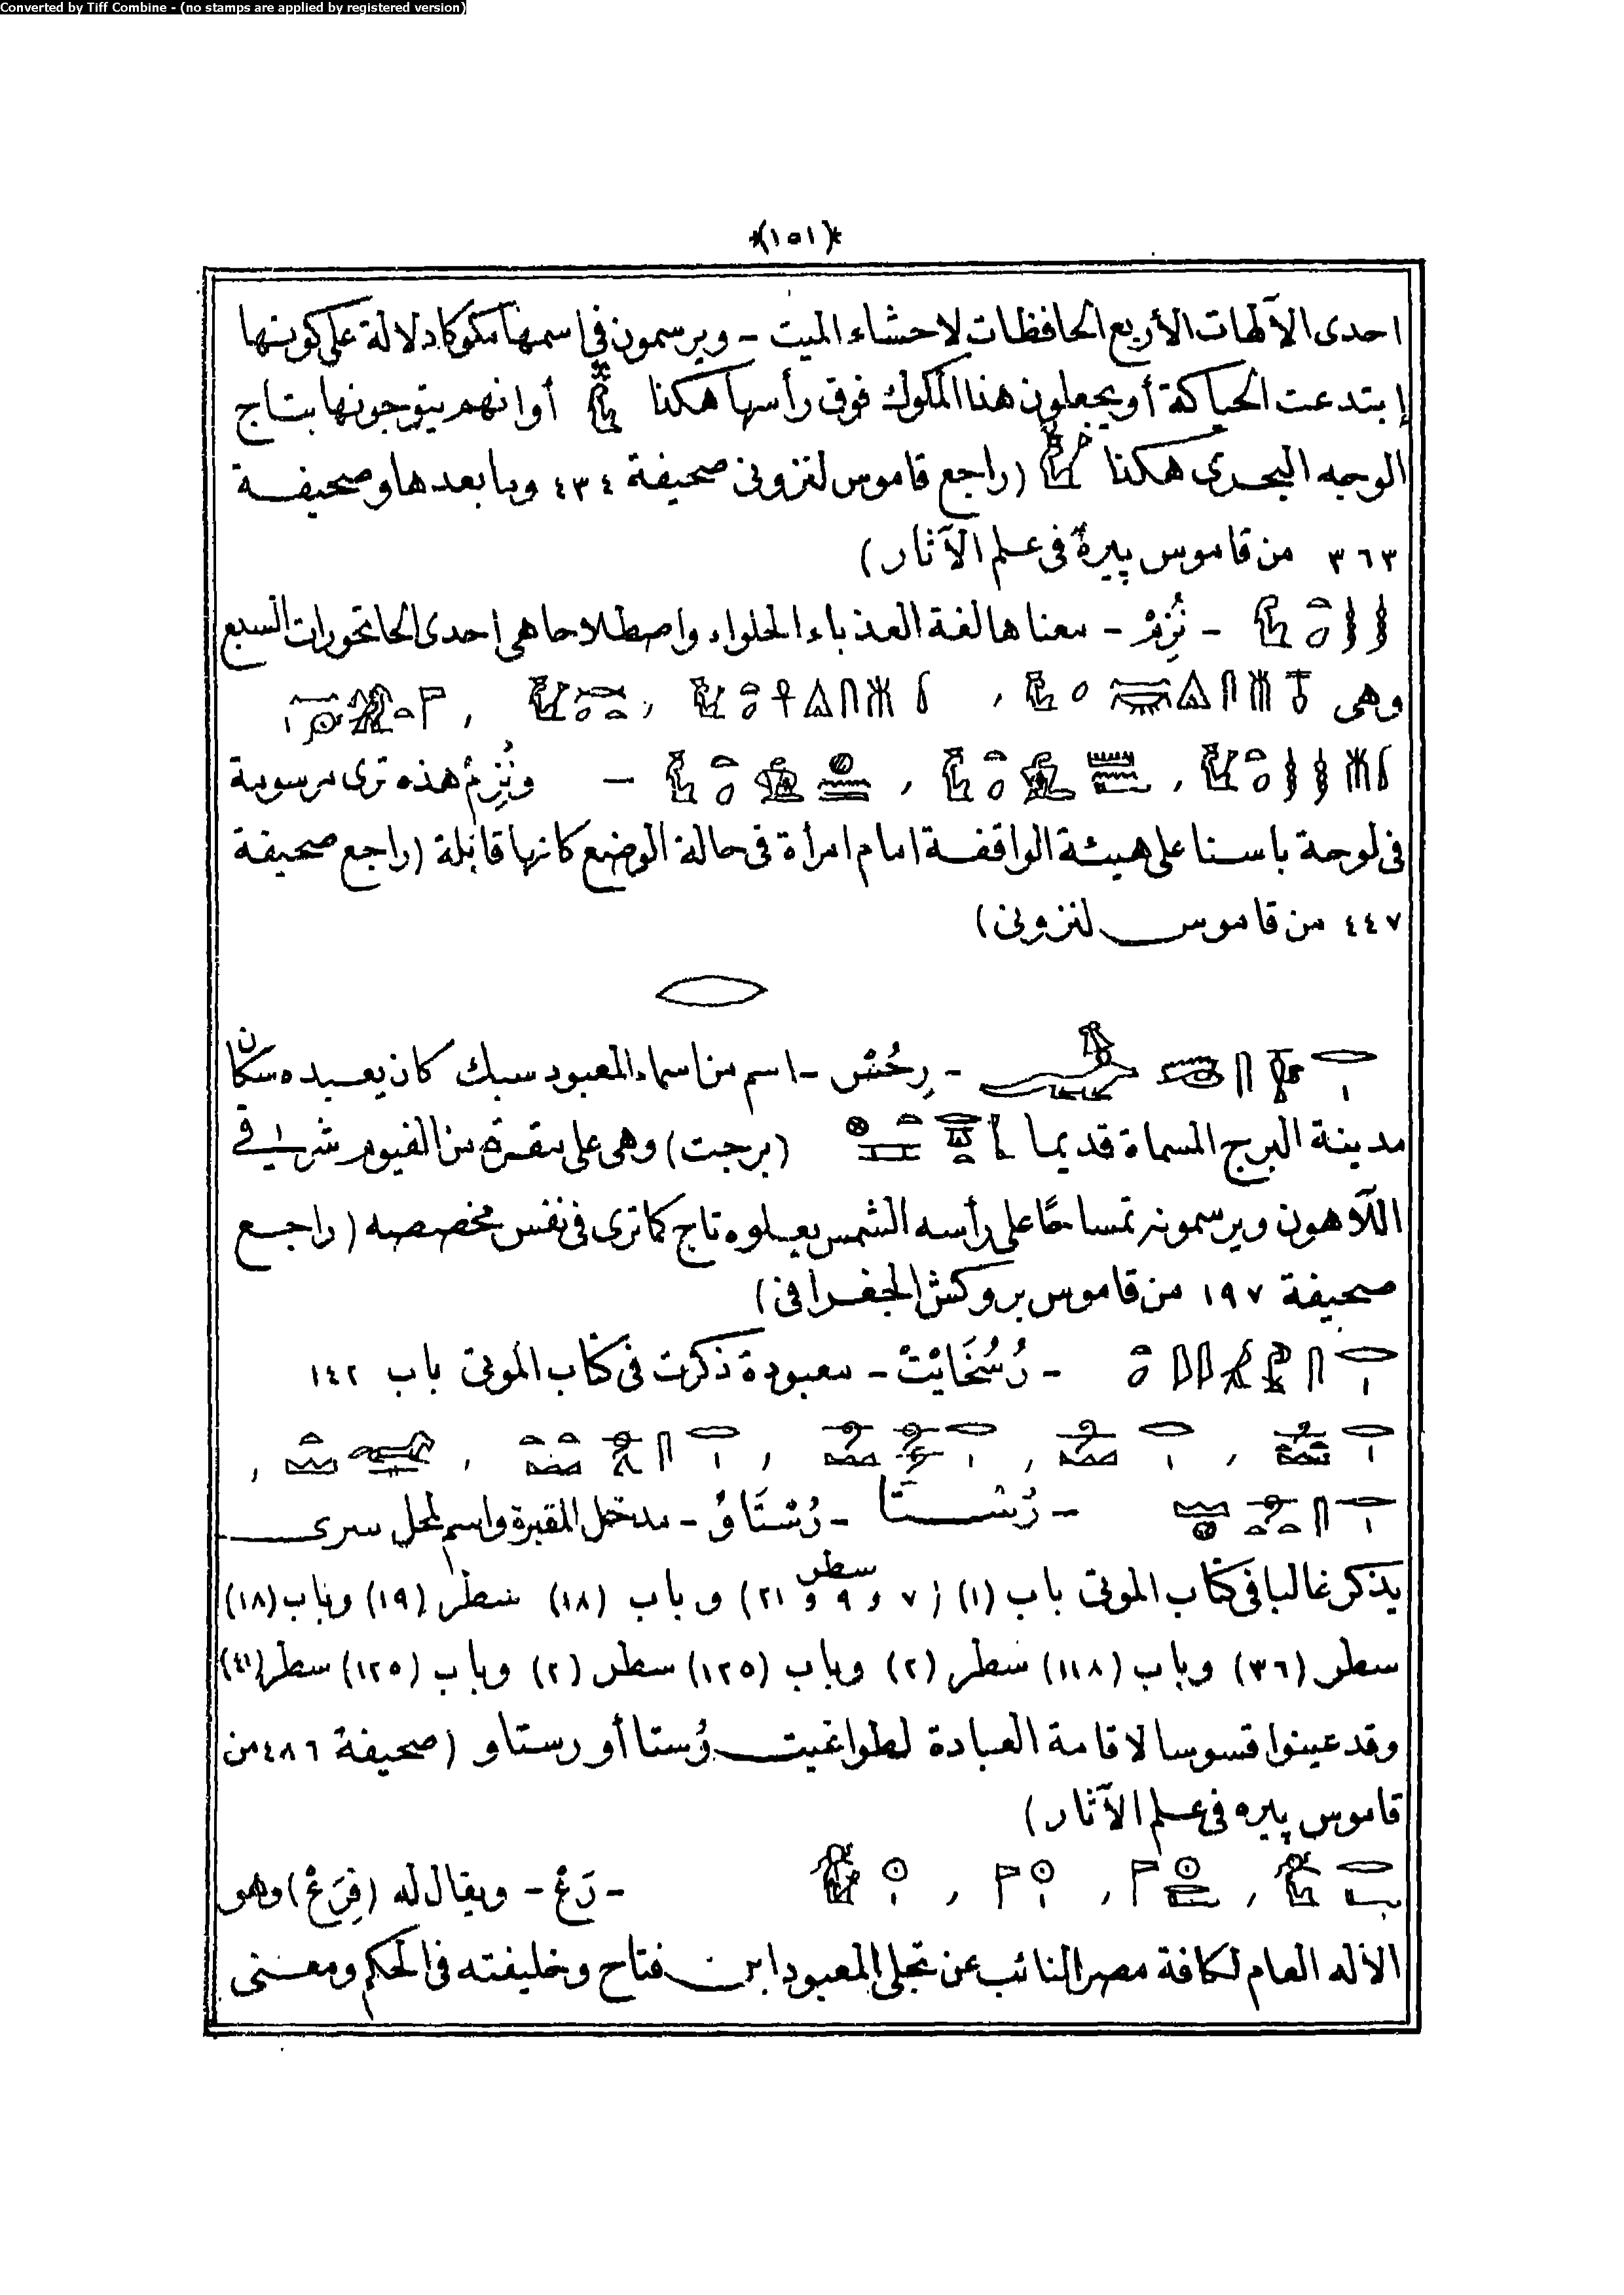 Converted by Tiff Combine - (no stamps are applied by registered version)
*(١٥١)*
احدى الآلهات الأربع الحافظات لاحشاء الميت - ويرسمون في اسمها مكوكا دلالة على كونها
إبتدعت الحياكة أو يجعلون هذا المكوك فوق رأسها هكذا أو انهم يتوجونها بتاج
الوجه البحرى هكذا (راجع قاموس لنزونى صحيفة ٤٣٤ وما بعدها وصحيفة
٣٦٣ من قاموس پيره فى علم الآثار)
- نُزِمْ - معناها لغة العذباء الحلواء واصطلاحا هى احدى الحاتحورات السبع
وهى
- ونُزِمْ هذه ترى مرسومة
فى لوحة باسنا على هيئة الواقفة امام امرأة فى حالة الوضع كانها قابلة (راجع صحيفة
٤٤٧ من قاموس لنزونى)
- رِحُسْ - اسم من اسماء المعبود سبك كان يعبده سكان
مدينة البرج المسماة قديما (برجت) وهى على مقربة من الفيوم شرقي
اللآهون ويرسمونه تمساحًا على رأسه الشمس يعلوه تاج كما ترى فى نفس مخصصه (راجع
صحيفة ١٩٧ من قاموس بروكش الجغرافى)
- رُسُخَايْتْ - معبودة ذكرت فى كتاب الموتى باب ١٤٢
- رُسْتَا - رُسْتَاوُ - مدخل المقبرة واسم لمحل سرى
يذكر غالبا فى كتاب الموتى باب (١) سطر (٧ و ٩ و ٢١) و باب (١٨) سطر (١٩) وباب (١٨)
سطر (٣٦) وباب (١١٨) سطر (٢) وباب (١٢٥) سطر (٢) وباب (١٢٥) سطر (٤١)
وقد عينوا قسوسا لاقامة العبادة لطواغيت رُستا أو رستاو (صحيفة ٤٨٦ من
قاموس پيره فى علم الآثار)
- رَعْ - ويقال له (فِرَعْ) وهو
الاله العام لكافة مصر النائب عن تجلى المعبود ابن فتاح وخليفته فى الحكم ومعنى